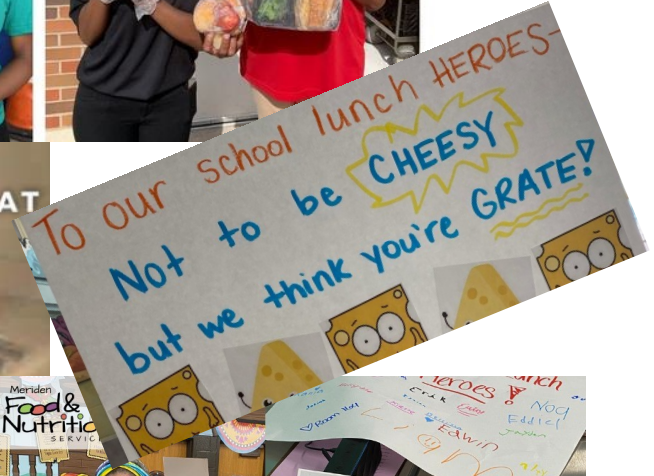 AT
To our school lunch HEROES-
Not to be CHEESY
but we think you're GRATE!
Meriden
Food &
Nutritio
SERVIC
Heroes!
Erik
Noq
Eddie
Edwin